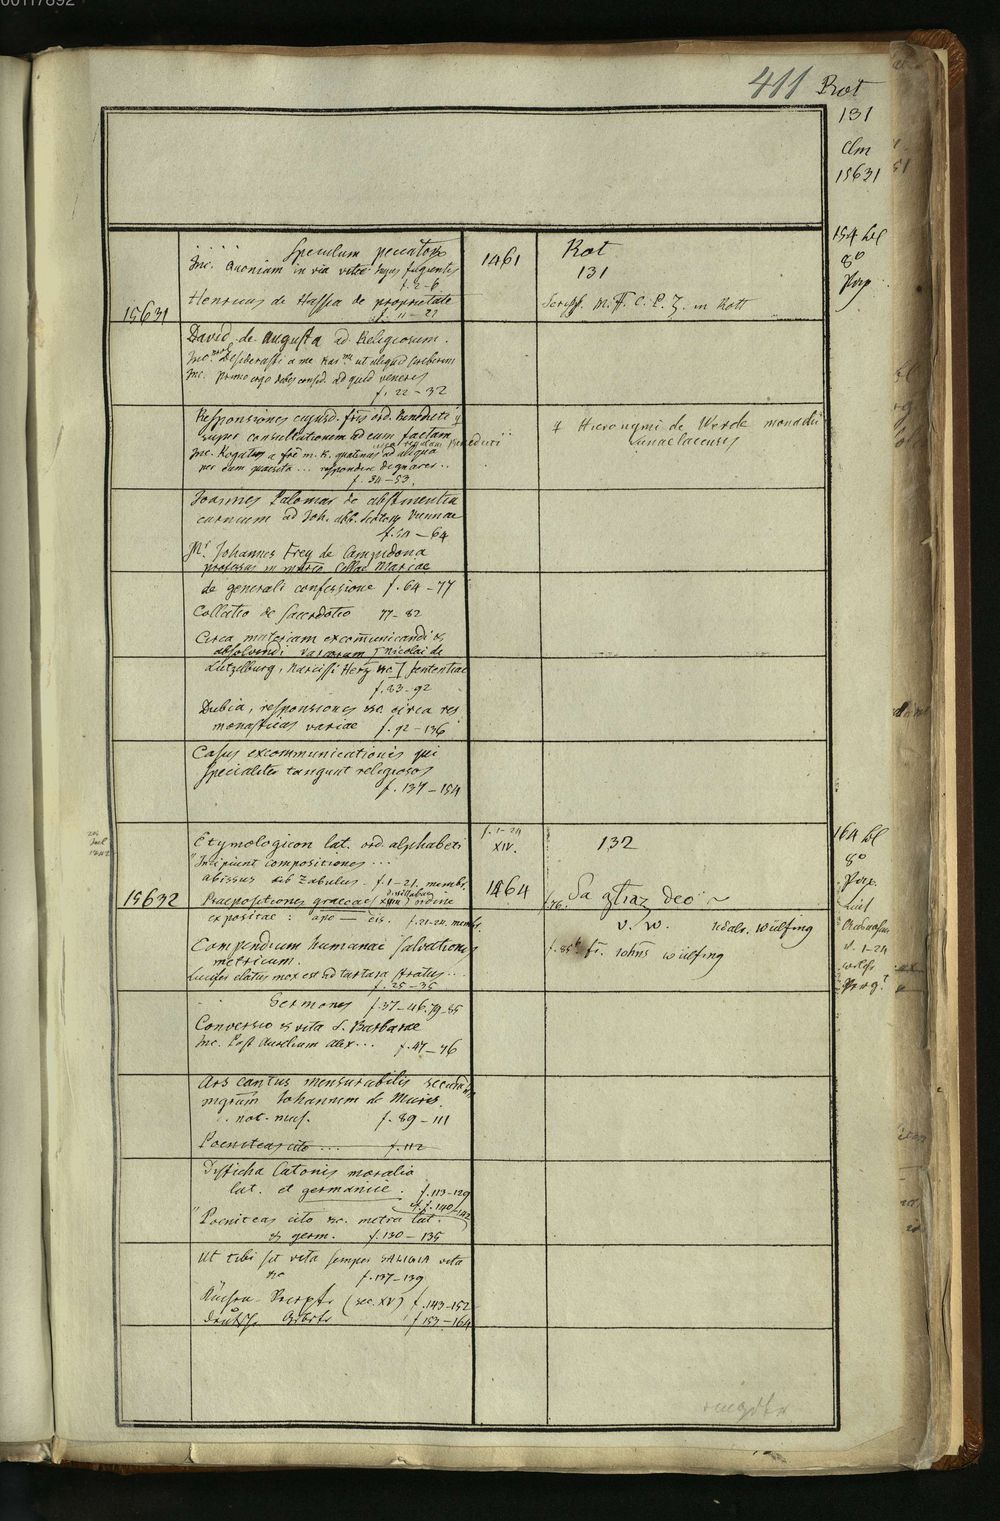 00117892
411 Rot
131
Clm
15631
154 bl
8°
Pap
15631
Speculum peccatorum
Inc. Quoniam in via vitae hujus fugientis
f. 2-6
Henricus de Hassia de proprietate
f. 11-21
1461
Rot
131
Script. M. F. C. P. Z. in Rott
David de Augusta ad Religiosum.
Inc. desiderasti a me kar.me ut aliquid scriberem
Inc. primo ergo debes consid. ad quid veneris
f. 22-32
Responsiones cujusd. fris ord. Benedicti q
super consultationem ad eum factam
Inc. Rogatus a fre m. k. quatinus ad aliqua
per eum quaesita ... respondere dignarer..
f. 34-53.
q Hieronymi de Werde monachi
Lunaelacensis
Joannes Palomar de abstinentia
carnium ad Joh. abb. Scotorum Viennae
f. 54-64
Mr. Johannes Frey de Campidona
professus in mnrio Cellae Mariae
de generali confessione f. 64-77
Collatio de Sacerdotio 77-82
Circa materiam excommunicandi &
absolvendi variorum [Nicolai de
Lutzelburg, Narcissi Herz &c] sententiae
f. 83-92
Dubia, responsiones &c. circa res
monasticas variae f. 92-136
Casus excommunicationis qui
specialiter tangunt religiosos
f. 137-154
15632
Etymologicon lat. ord. alphabeti
"Incipiunt compositiones ...
abissus Zabulus. f. 1-21. membr.
Praepositiones graecae ordine
expositae: ano — eis. f. 21-24. membr.
Compendium humanae salvationis
metricum.
Lucifer elatus mox est ad tartara stratus ...
f. 25-35
f. 1-24
XIV.
1464
132
f. 76. Sa gtiaz deo
v. w. Udalr. Wülfing
f. 85b fr. Johns wülfing
164 bl
8°
Pap.
f. 1-24
Perg.
Sermones f. 37-46. 79-85
Conversio & vita S. Barbarae
Inc. Post Aurelium Alex ... f. 47-76
Ars cantus mensurabilis secundum
mgrum Johannem de Muris.
c. not. mus. f. 89-111
Poeniteas cito ... f. 112
Disticha Catonis moralia
lat. et germanice. f. 113-129
cf. f. 140-142
"Poeniteas cito &c. metra lat.
& germ. f. 130-135
Ut tibi sit vita semper SALIGIA vita
&c f. 137-139
(sec. XV) f. 143-152
f. 153-164